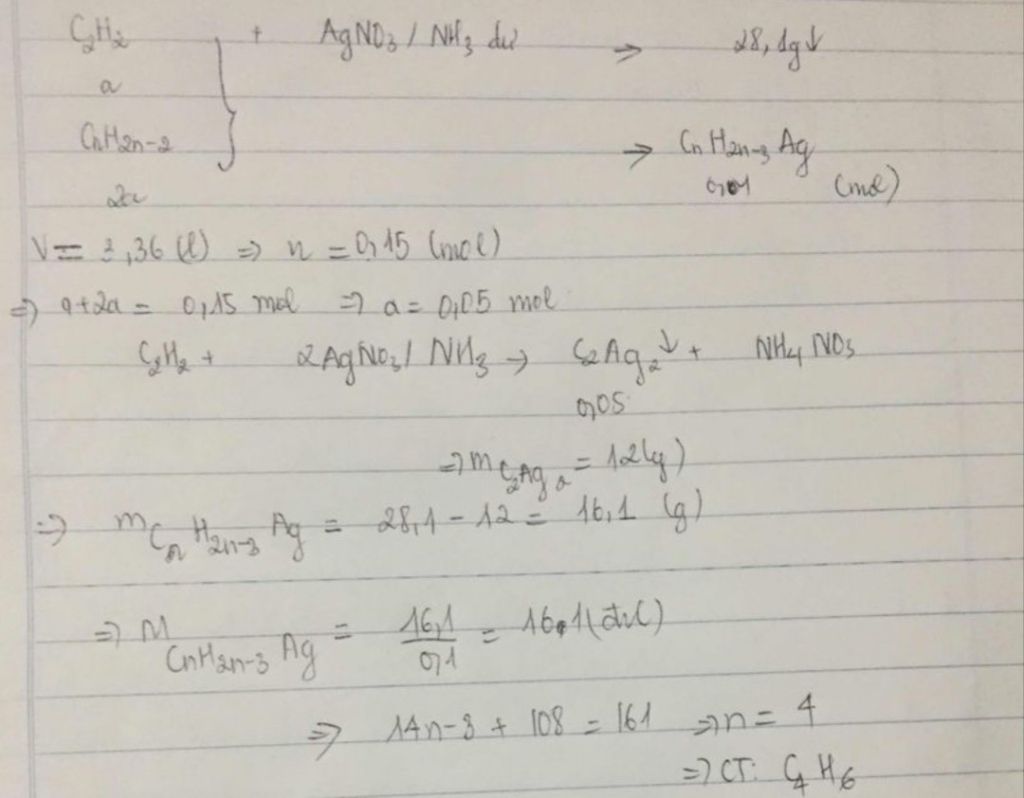 C₂H₂ + AgNO₃ / NH₃ dư → 28,1g↓
a
CnH2n-2 → CnH2n-3Ag
2a 0,01 (mol)
V = 3,36 (l) ⇒ n = 0,15 (mol)
⇒ a+2a = 0,15 mol ⇒ a = 0,05 mol
C₂H₂ + 2AgNO₃/ NH₃ → C₂Ag₂↓ + NH₄NO₃
0,05
⇒ m C₂Ag₂ = 12(g)
⇒ m CnH2n-3Ag = 28,1 - 12 = 16,1 (g)
⇒ M CnH2n-3Ag = 16,1/0,1 = 161 (đvC)
⇒ 14n-3 + 108 = 161 ⇒ n = 4
⇒ CT: C₄H₆